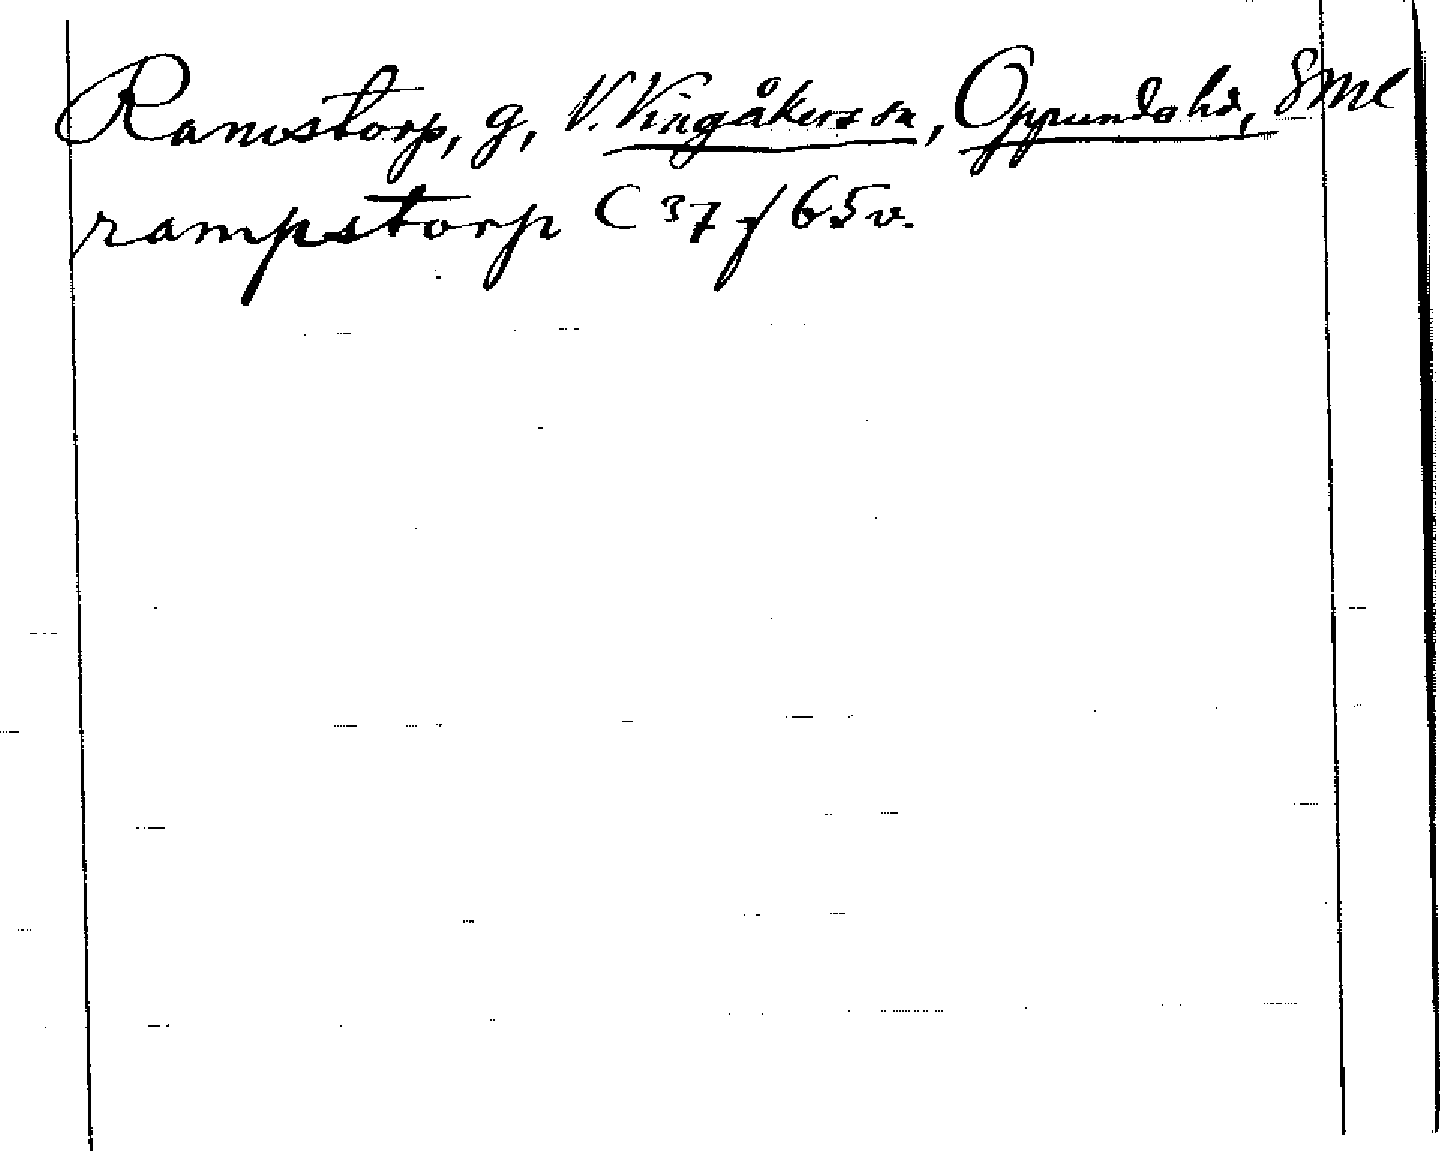 Ramstorp, g, V. Vingåkers sn, Oppunda hd, Sml
rampstorp C 37 f 65 v.